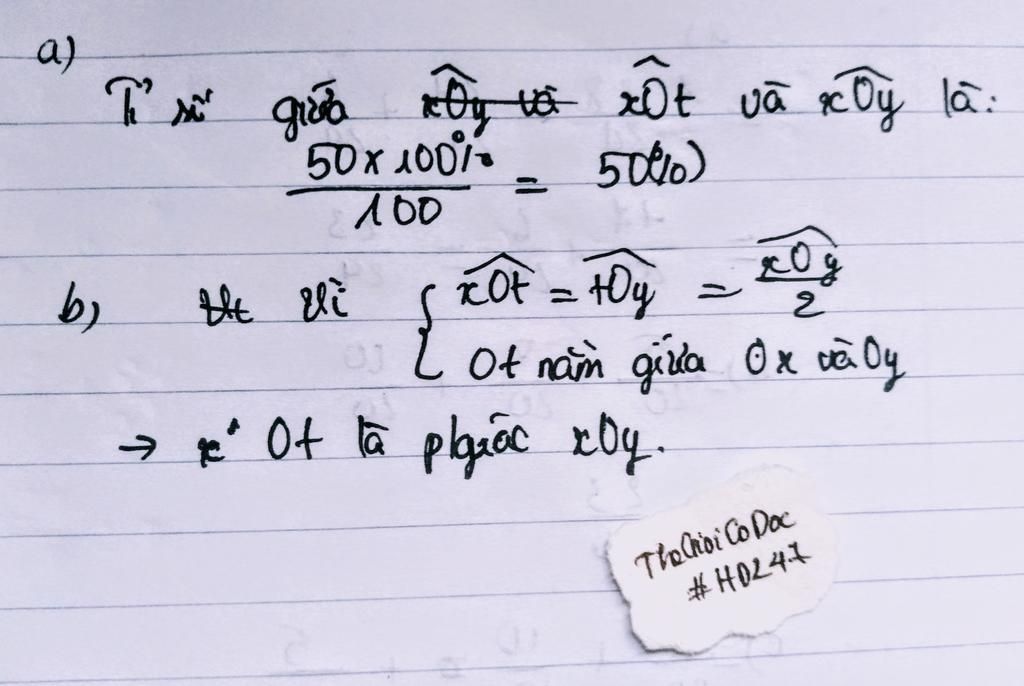 a)
Tỉ số giữa xOy và xOt và xOy là:
50 x 100% / 100 = 50(%)
b) Vì { xOt = tOy = xOy / 2
Ot nằm giữa Ox và Oy
→ Ot là pgiác xOy.
TheGioiCoDoc
#HD247